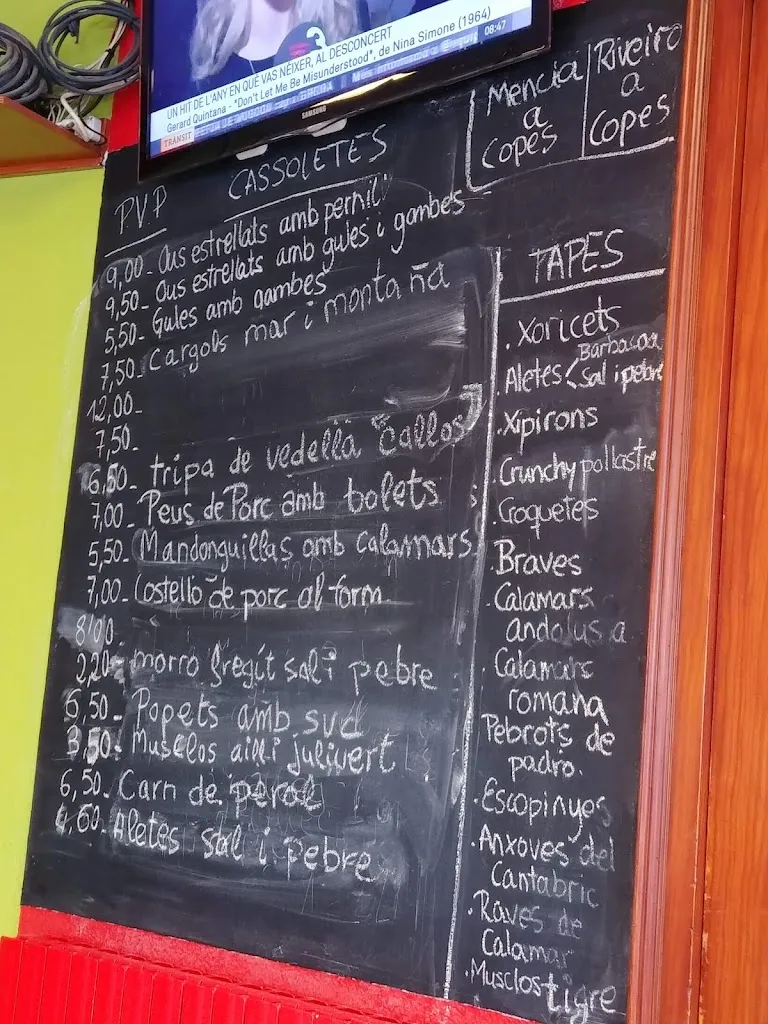 3
UN HIT DE L'ANY EN QUÈ VAS NÉIXER, AL DESCONCERT
Gerard Quintana - "Don't Let Me Be Misunderstood", de Nina Simone (1964)
08:47
TRÀNSIT
SAMSUNG
Mencia a copes
Riveiro a copes
PVP CASSOLETES
9,00- Ous estrellats amb pernil
9,50- Ous estrellats amb gules i gambes
5,50- Gules amb gambes
7,50- Cargols mar i montaña
12,00-
7,50-
6,50- tripa de vedella "callos"
7,00- Peus de Porc amb bolets
5,50- Mandonguillas amb calamars
7,00- Costello de porc al form
8,00
2,20- morro fregit sal i pebre
6,50- Popets amb suc
3,50- Musclos all i julivert
6,50- Carn de perol
4,60- Aletes sal i pebre
TAPES
. Xoricets
Aletes < Barbacoa
sal i pebre
. Xipirons
. Crunchy pollastre
. Croquetes
Braves
. Calamars
andalusa
. Calamars
romana
Pebrots de
padro.
. Escopinyes
. Anxoves del
Cantabric
. Raves de
Calamar
. Musclos tigre